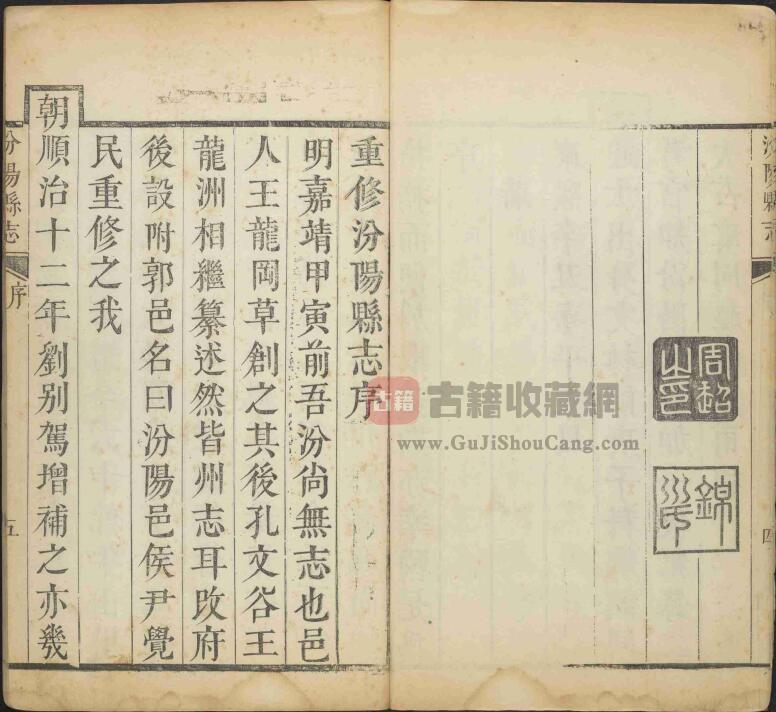 汾陽縣志
四
周
山印
錦
重修汾陽縣志序
明嘉靖甲寅前吾汾尚無志也邑
人王龍岡草創之其後孔文谷王
龍洲相繼纂述然皆州志耳改府
後設附郭邑名曰汾陽邑侯尹覺
民重修之我
朝順治十二年劉别駕增補之亦幾
汾陽縣志
序
五
古籍
古籍收藏網
www.GuJiShouCang.com